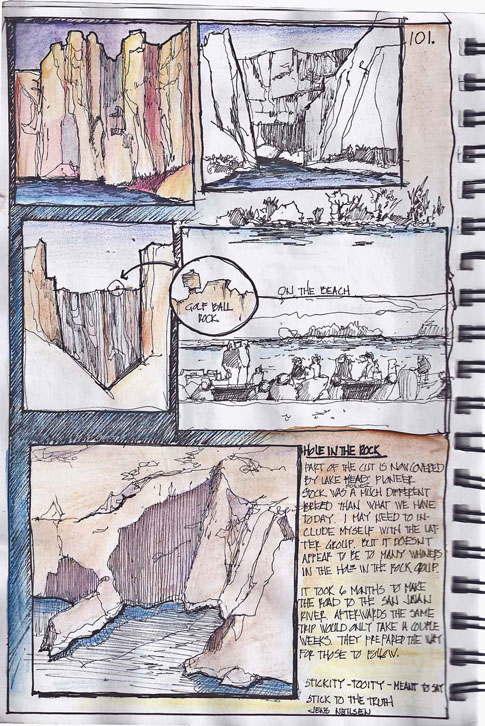 101.
GOLF BALL
ROCK
ON THE BEACH
HOLE IN THE ROCK
PART OF THE CUT IS NOW COVERED
BY LAKE MEAD; PIONEER
STOCK WAS A MUCH DIFFERENT
BREED THAN WHAT WE HAVE
TODAY. I MAY NEED TO IN-
CLUDE MYSELF WITH THE LAT-
TER GROUP. BUT IT DOESN'T
APPEAR TO BE TO MANY WHINERS
IN THE HOLE IN THE ROCK GROUP.
IT TOOK 6 MONTHS TO MAKE
THE ROAD TO THE SAN JUAN
RIVER. AFTERWARDS THE SAME
TRIP WOULD ONLY TAKE A COUPLE
WEEKS. THEY PREPARED THE WAY
FOR THOSE TO FOLLOW.
STICKITY-TOOITY - MEANT TO SAY
STICK TO THE TRUTH
JENS